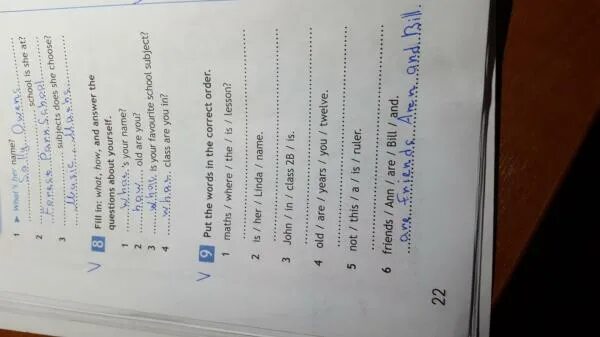 1 ► What's her name?
Sally Owens
2 ............ school is she at?
Forest Park School
3 ............ subjects does she choose?
Music
V 8 Fill in: what, how, and answer the
questions about yourself.
1 what 's your name?
2 how old are you?
3 what is your favourite school subject?
4 what class are you in?
V 9 Put the words in the correct order.
1 maths / where / the / is / lesson?
2 is / her / Linda / name.
3 John / in / class 2B / is.
4 old / are / years / you / twelve.
5 not / this / a / is / ruler.
6 friends / Ann / are / Bill / and.
are friends Ann and Bill.
22